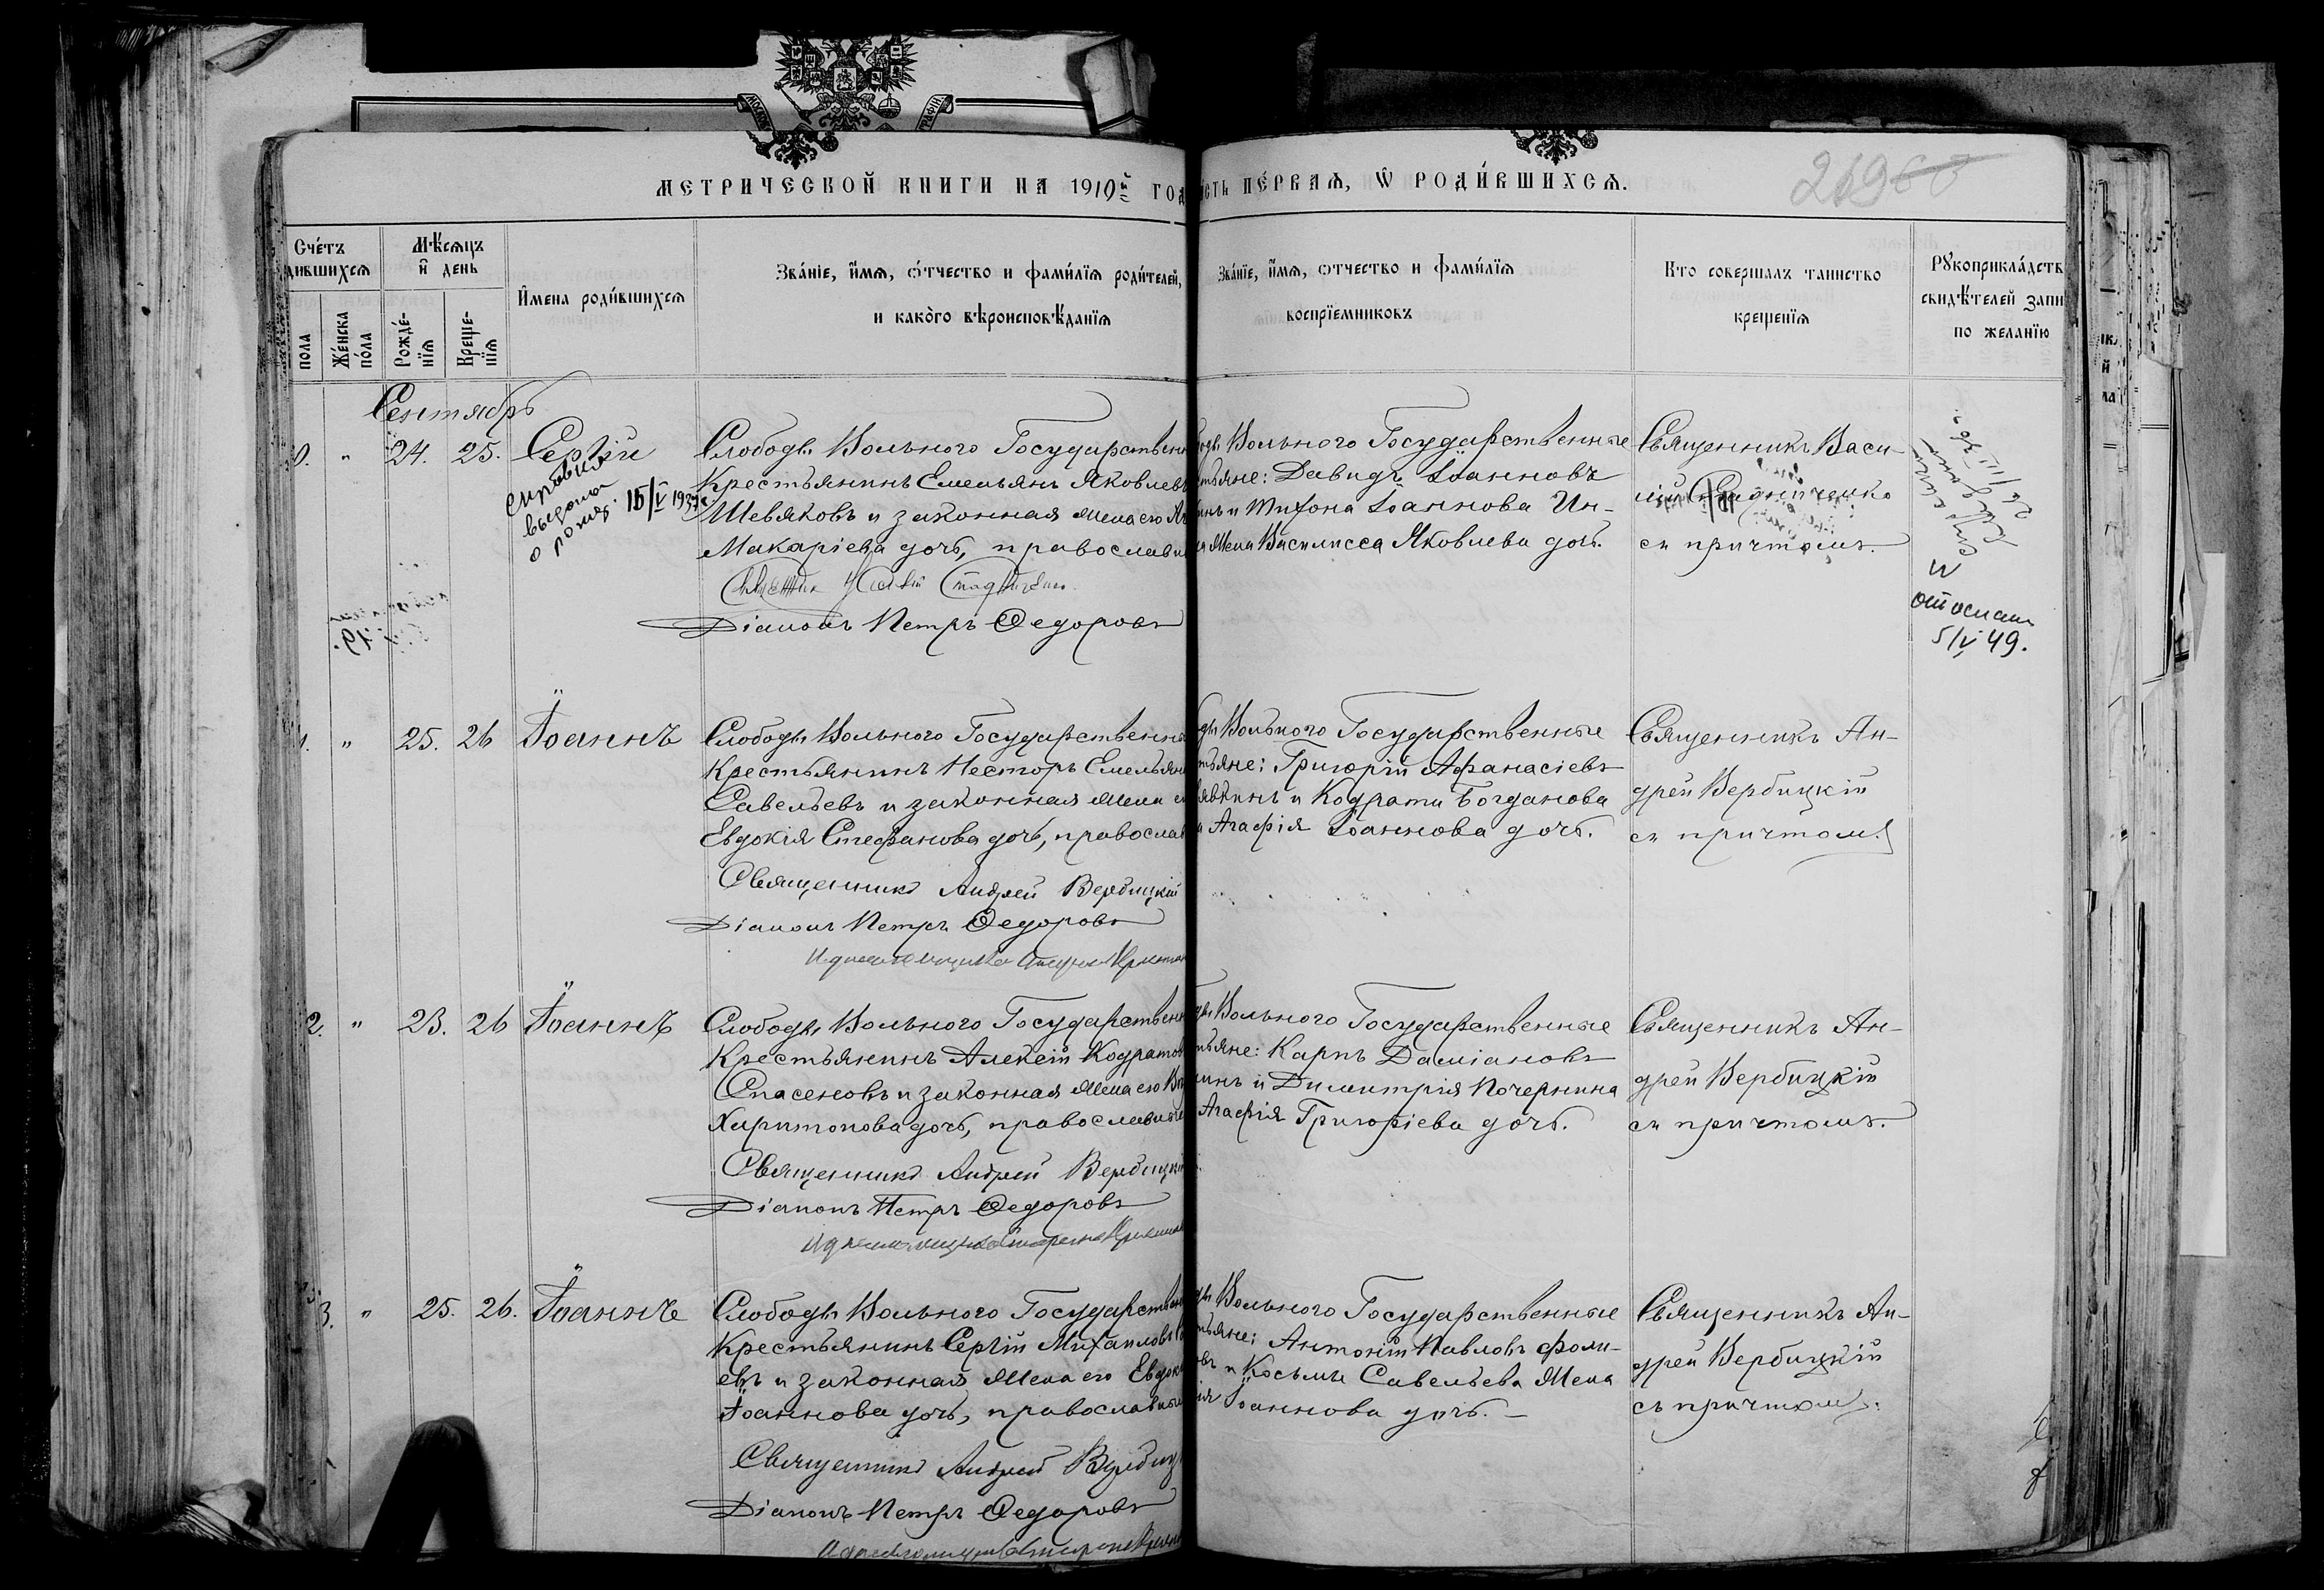 МЕТРИЧЕСКОЙ КНИГИ НА 1910й ГОД
СТЬ ПЕ́РВАѦ, Ѡ РОДИ́ВШИХСѦ.
269
Сче́тъ
дившихсѧ
Мѣ́сѧцъ
и҆ день
пола
Же́нска
по́ла
Рожде́-
нїѧ
Креще-
нїѧ
И҆мена роди́вшихсѧ
Зва́нїе, и҆́мѧ, ѻ҆́тчество и фами́лїѧ роди́телей,
и како́го вѣроисповѣ́данїѧ
Зва́нїе, и҆́мѧ, ѻтчество и фами́лїѧ
воспрїемниковъ
Кто совершалъ таинство
крещенїѧ
Рꙋкоприкла́дств
свидѣ́телей запи
по желанїю
Сентябрь
0. " 24. 25. Сергій
справка
выдана
о рожд. 15/V 1937
Слободы Вольного Государствен
Крестьянинъ Емельянъ Яковлевъ
Шевяковъ и законная жена его
Макаріева дочь, православн
Діаконъ Петръ Ѳедоровъ
Вольного Государственные
тьяне: Давидъ Іоанновъ
инъ и Тихона Іоаннова Ин-
жена Василисса Яковлева дочь.
Священникъ Васи-
лій
съ причтомъ.
отослан
5/V 49.
1. " 25. 26 Іоаннъ
Слободы Вольного Государственны
Крестьянинъ Несторъ Емельян
Савельевъ и законная жена е
Евдокія Стефанова дочь, православ
Священникъ Андрей Вербицкій
Діаконъ Петръ Ѳедоровъ
ды Вольного Государственные
тьяне: Григорій Аѳанасіевъ
явкинъ и Кодрата Богданова
а Агафія Іоаннова дочь.
Священникъ Ан-
дрей Вербицкій
съ причтомъ
2. " 23. 26 Іоаннъ
Слободы Вольного Государствен
Крестьянинъ Алексій Кодратов
Спасеновъ и законная жена его
Харитонова дочь, православные
Священникъ Андрей Вербицкі
Діаконъ Петръ Ѳедоровъ
ды Вольного Государственные
тьяне: Карпъ Даміановъ
инъ и Димитрія Почернина
Агафія Григоріева дочь.
Священникъ Ан-
дрей Вербицкій
съ причтомъ.
3. " 25. 26. Іоаннъ
Слободы Вольного Государствен
Крестьянинъ Сергій Михаиловъ
евъ и законная жена его Евдок
Іоаннова дочь, православные
Священникъ Андрей Вербиц
Діаконъ Петръ Ѳедоровъ
ды Вольного Государственные
тьяне: Антоній Павловъ Фоми-
овъ и Косьмы Савельева жена
ія Іоаннова дочь. —
Священникъ Ан-
дрей Вербицкій
съ причтомъ.